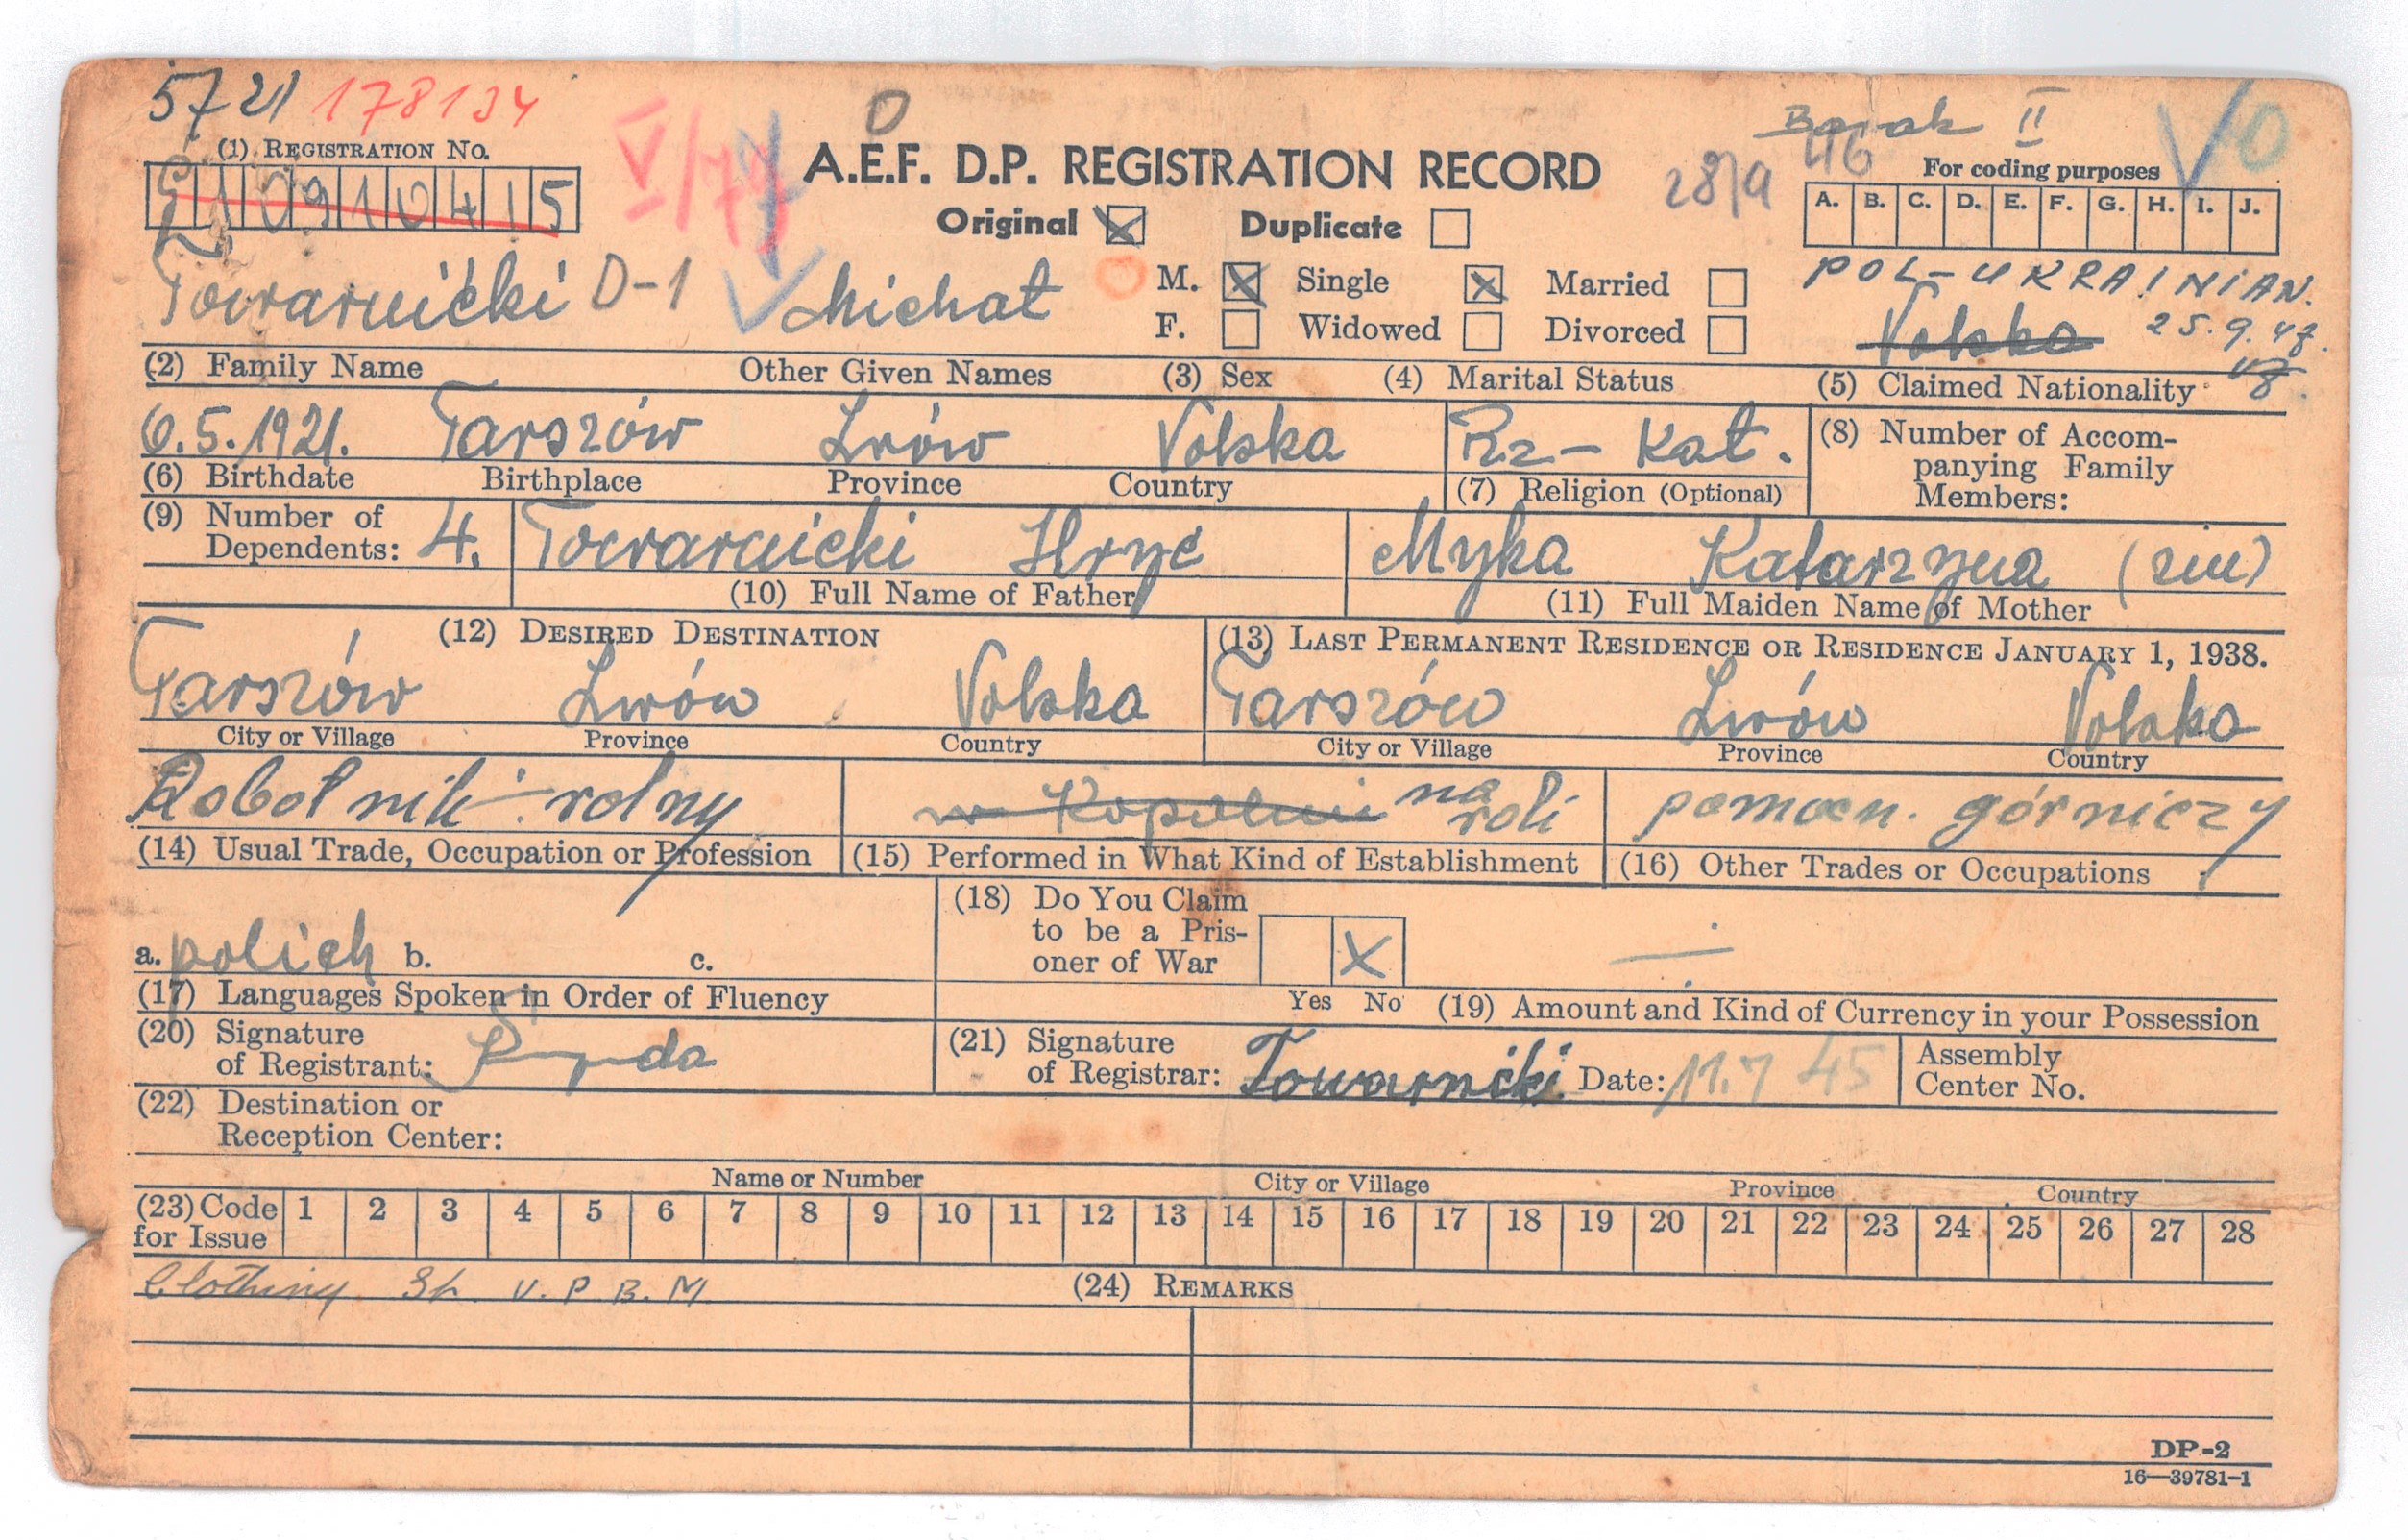 5721 178134
(1) REGISTRATION No.
0910415
V/77
O
A.E.F. D.P. REGISTRATION RECORD
Original Duplicate
Barak II
28/9 46
VO
For coding purposes
A. B. C. D. E. F. G. H. I. J.
Towarnicki D-1 Michał
M. Single Married
F. Widowed Divorced
POL-UKRAINIAN.
Polska 25.9.47.
(2) Family Name Other Given Names (3) Sex (4) Marital Status (5) Claimed Nationality
6.5.1921. Tarszów Lwów Polska Rz-Kat.
(6) Birthdate Birthplace Province Country (7) Religion (Optional)
(8) Number of Accom-
panying Family
Members:
(9) Number of
Dependents: 4. Towarnicki Hryć Myka Katarzyna
(10) Full Name of Father (11) Full Maiden Name of Mother
(12) DESIRED DESTINATION (13) LAST PERMANENT RESIDENCE OR RESIDENCE JANUARY 1, 1938.
Tarszów Lwów Polska Tarszów Lwów Polska
City or Village Province Country City or Village Province Country
Robotnik-rolny w Kopalni na roli pomocn. górniczy
(14) Usual Trade, Occupation or Profession (15) Performed in What Kind of Establishment (16) Other Trades or Occupations
a. polich b. c.
(17) Languages Spoken in Order of Fluency
(18) Do You Claim
to be a Pris-
oner of War X
Yes No (19) Amount and Kind of Currency in your Possession
(20) Signature
of Registrant:
(21) Signature
of Registrar: Towarnicki Date: 11.7 45
Assembly
Center No.
(22) Destination or
Reception Center:
Name or Number City or Village Province Country
(23) Code
for Issue 1 2 3 4 5 6 7 8 9 10 11 12 13 14 15 16 17 18 19 20 21 22 23 24 25 26 27 28
Clothing Sh. V.P.B.M.
(24) REMARKS
DP-2
16—39781-1